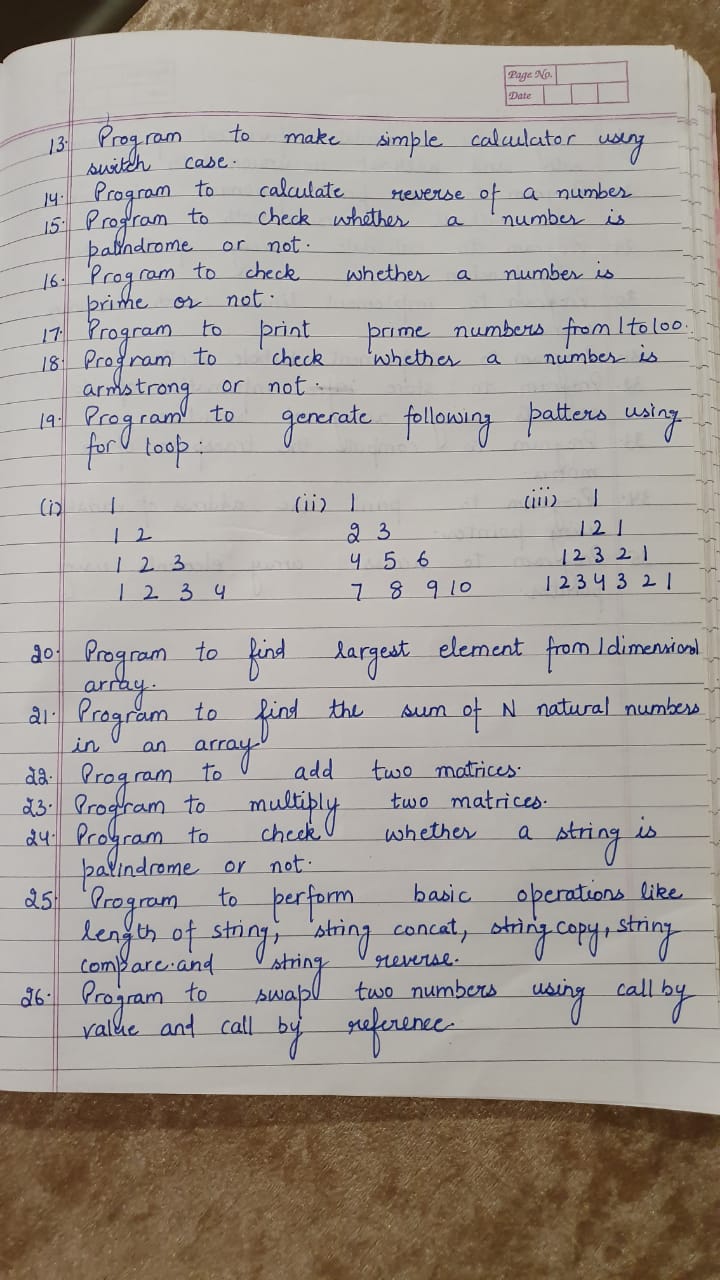 Page No.
Date
13. Program to make simple calculator using
switch case.
14. Program to calculate reverse of a number
15. Program to check whether a number is
palindrome or not.
16. Program to check whether a number is
prime or not.
17. Program to print prime numbers from 1 to 100.
18. Program to check whether a number is
armstrong or not.
19. Program to generate following patters using
for loop:
(i) 1 (ii) 1 (iii) 1
1 2 2 3 1 2 1
1 2 3 4 5 6 1 2 3 2 1
1 2 3 4 7 8 9 10 1 2 3 4 3 2 1
20. Program to find largest element from 1 dimensional
array.
21. Program to find the sum of N natural numbers
in an array
22. Program to add two matrices.
23. Program to multiply two matrices.
24. Program to check whether a string is
palindrome or not.
25. Program to perform basic operations like
length of string, string concat, string copy, string
compare and string reverse.
26. Program to swap two numbers using call by
value and call by reference.